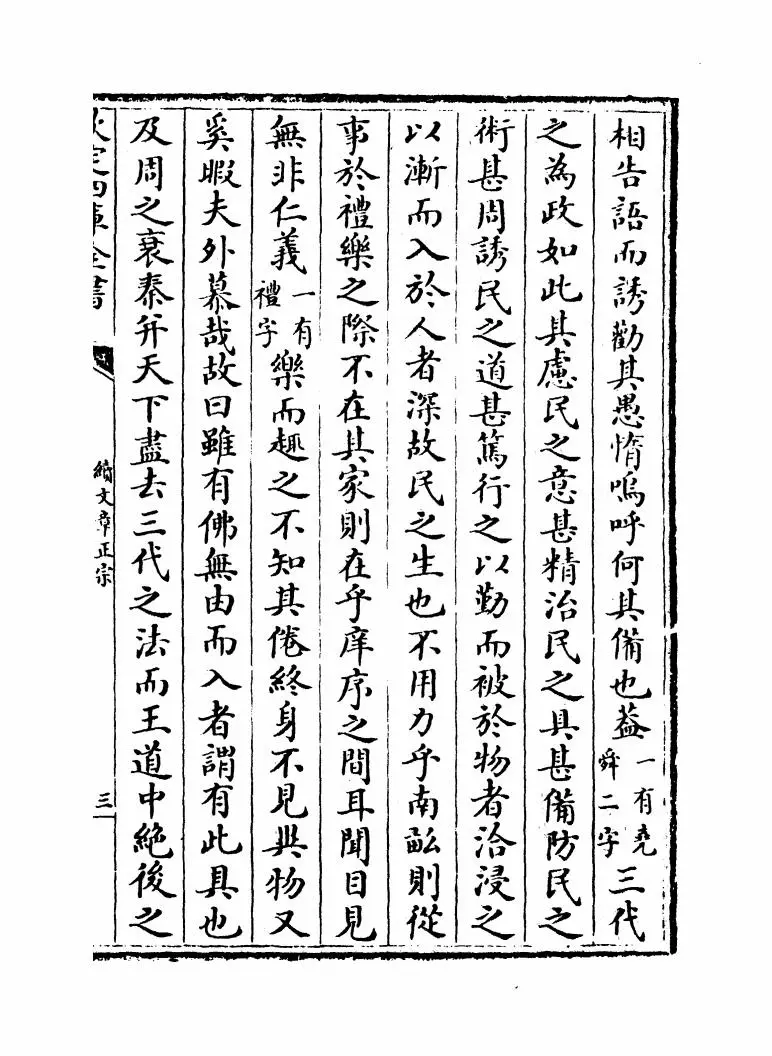 相告語而誘勸其愚惰嗚呼何其備也葢一有堯舜二字三代
之為政如此其慮民之意甚精治民之具甚備防民之
術甚周誘民之道甚篤行之以勤而被於物者洽浸之
以漸而入於人者深故民之生也不用力乎南畝則從
事於禮樂之際不在其家則在乎庠序之間耳聞目見
無非仁義一有禮字樂而趣之不知其倦終身不見異物又
奚暇夫外慕哉故曰雖有佛無由而入者謂有此具也
及周之衰秦并天下盡去三代之法而王道中絶後之
欽定四庫全書
續文章正宗
三